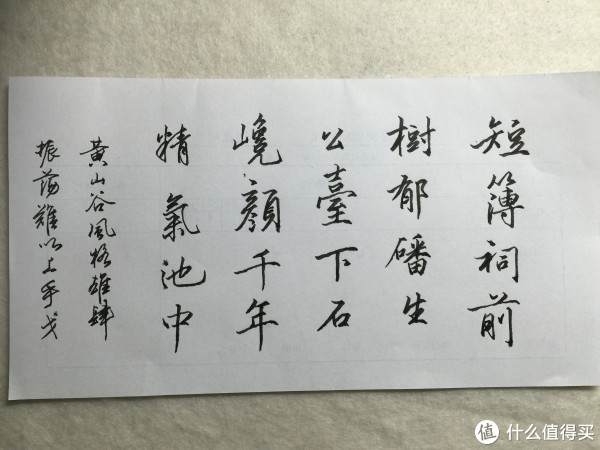 短簿祠前
樹郁磻生
公臺下石
巉顔千年
精氣池中
黄山谷風格雄肆
振荡難以上手
值 什么值得买